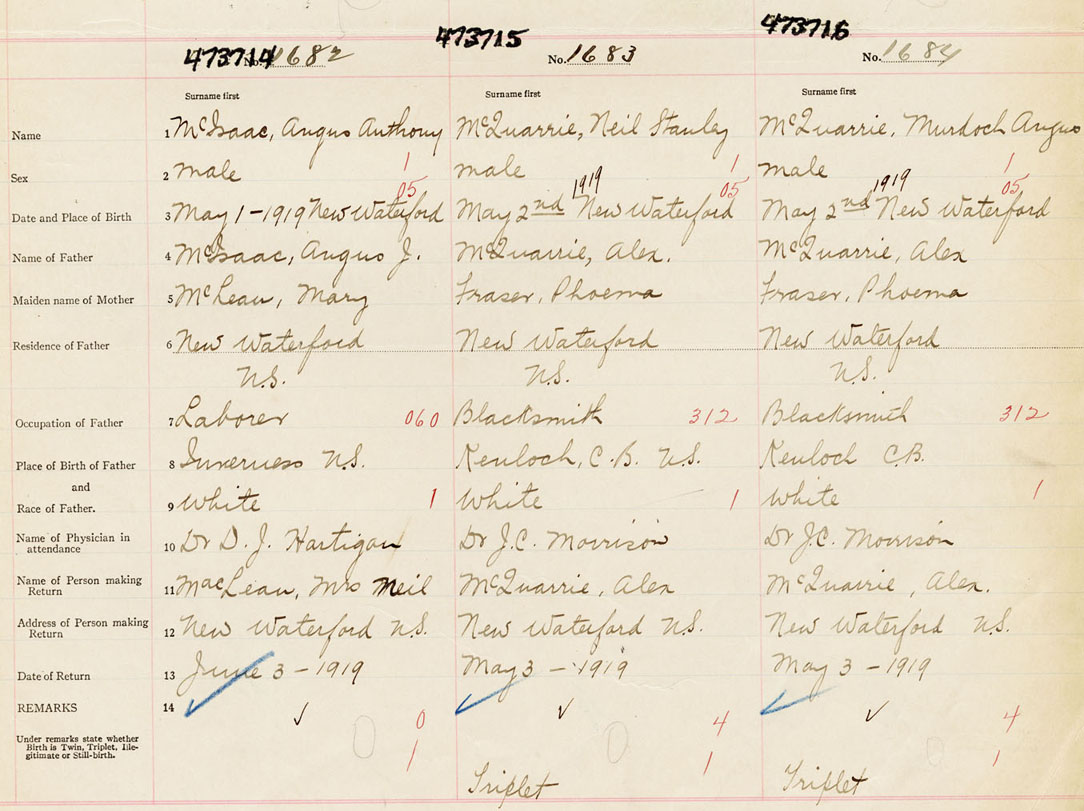 473714 No. 1682 473715 No. 1683 473716 No. 1684
Surname first Surname first Surname first
Name 1 McIsaac, Angus Anthony McQuarrie, Neil Stanley McQuarrie, Murdoch Angus
Sex 2 male 1 male 1 male 1
05 1919 05 1919 05
Date and Place of Birth 3 May 1-1919 New Waterford May 2nd New Waterford May 2nd New Waterford
Name of Father 4 McIsaac, Angus J. McQuarrie, Alex. McQuarrie, Alex
Maiden name of Mother 5 McLean, Mary Fraser, Phoema Fraser, Phoema
Residence of Father 6 New Waterford New Waterford New Waterford
N.S. N.S. N.S.
Occupation of Father 7 Laborer 060 Blacksmith 312 Blacksmith 312
Place of Birth of Father 8 Inverness N.S. Kenloch, C.B. N.S. Kenloch C.B.
and
Race of Father. 9 White 1 White 1 White 1
Name of Physician in
attendance 10 Dr D. J. Hartigan Dr J.C. Morrison Dr J.C. Morrison
Name of Person making
Return 11 MacLean, Mrs Neil McQuarrie, Alex McQuarrie, Alex.
Address of Person making
Return 12 New Waterford N.S. New Waterford N.S. New Waterford N.S.
Date of Return 13 June 3-1919 May 3-1919 May 3-1919
REMARKS 14 ✓ ✓ 0 ✓ ✓ 4 ✓ ✓ 4
Under remarks state whether
Birth is Twin, Triplet, Ille-
gitimate or Still-birth. 0 1 0 1 0 1
Triplet Triplet